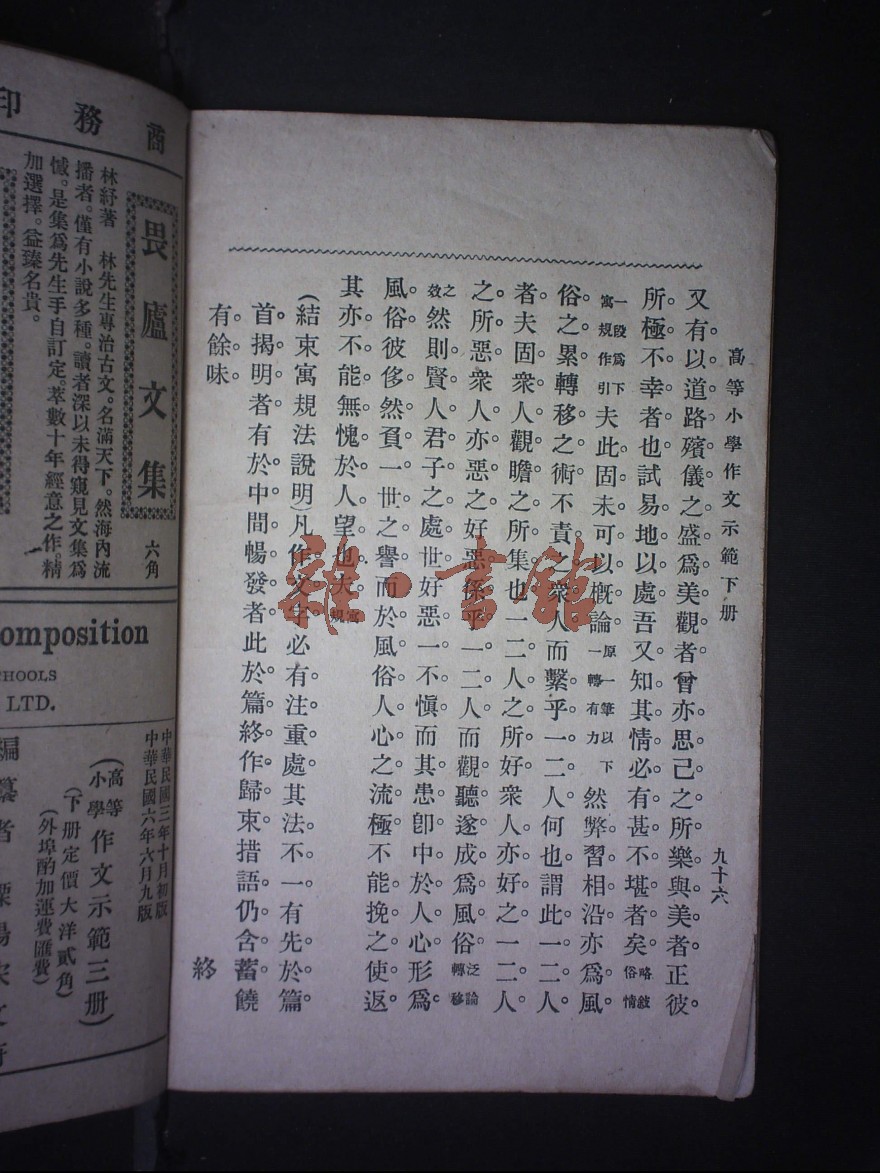 高等小學作文示範下册
九十六
又有以道路殯儀之盛爲美觀者曾亦思己之所樂與美者正彼
所極不幸者也試易地以處吾又知其情必有甚不堪者矣略敍俗情
一段爲下寓規作引夫此固未可以概論原一筆以下一轉有力然弊習相沿亦爲風
俗之累轉移之術不責之衆人而繫乎一二人何也謂此一二人
者夫固衆人觀瞻之所集也一二人之所好衆人亦好之一二人
之所惡衆人亦惡之好惡係乎一二人而觀聽遂成爲風俗泛論轉移
之效然則賢人君子之處世好惡一不愼而其患卽中於人心形爲
風俗彼侈然負一世之譽而於風俗人心之流極不能挽之使返
其亦不能無愧於人望也夫寓規
(結束寓規法說明)凡作文字必有注重處其法不一有先於篇
首揭明者有於中間暢發者此於篇終作歸束措語仍含蓄饒
有餘味。
終
商務印
畏廬文集
六角
林紓著 林先生專治古文。名滿天下。然海內流
播者。僅有小說多種。讀者深以未得窺見文集爲
憾。是集爲先生手自訂定。萃數十年經意之作。精
加選擇。益臻名貴。
omposition
CHOOLS
LTD.
中華民國三年十月初版
中華民國六年六月九版
(高等小學作文示範三册)
(下册定價大洋貳角)
(外埠酌加運費匯費)
編纂者
雜·書館